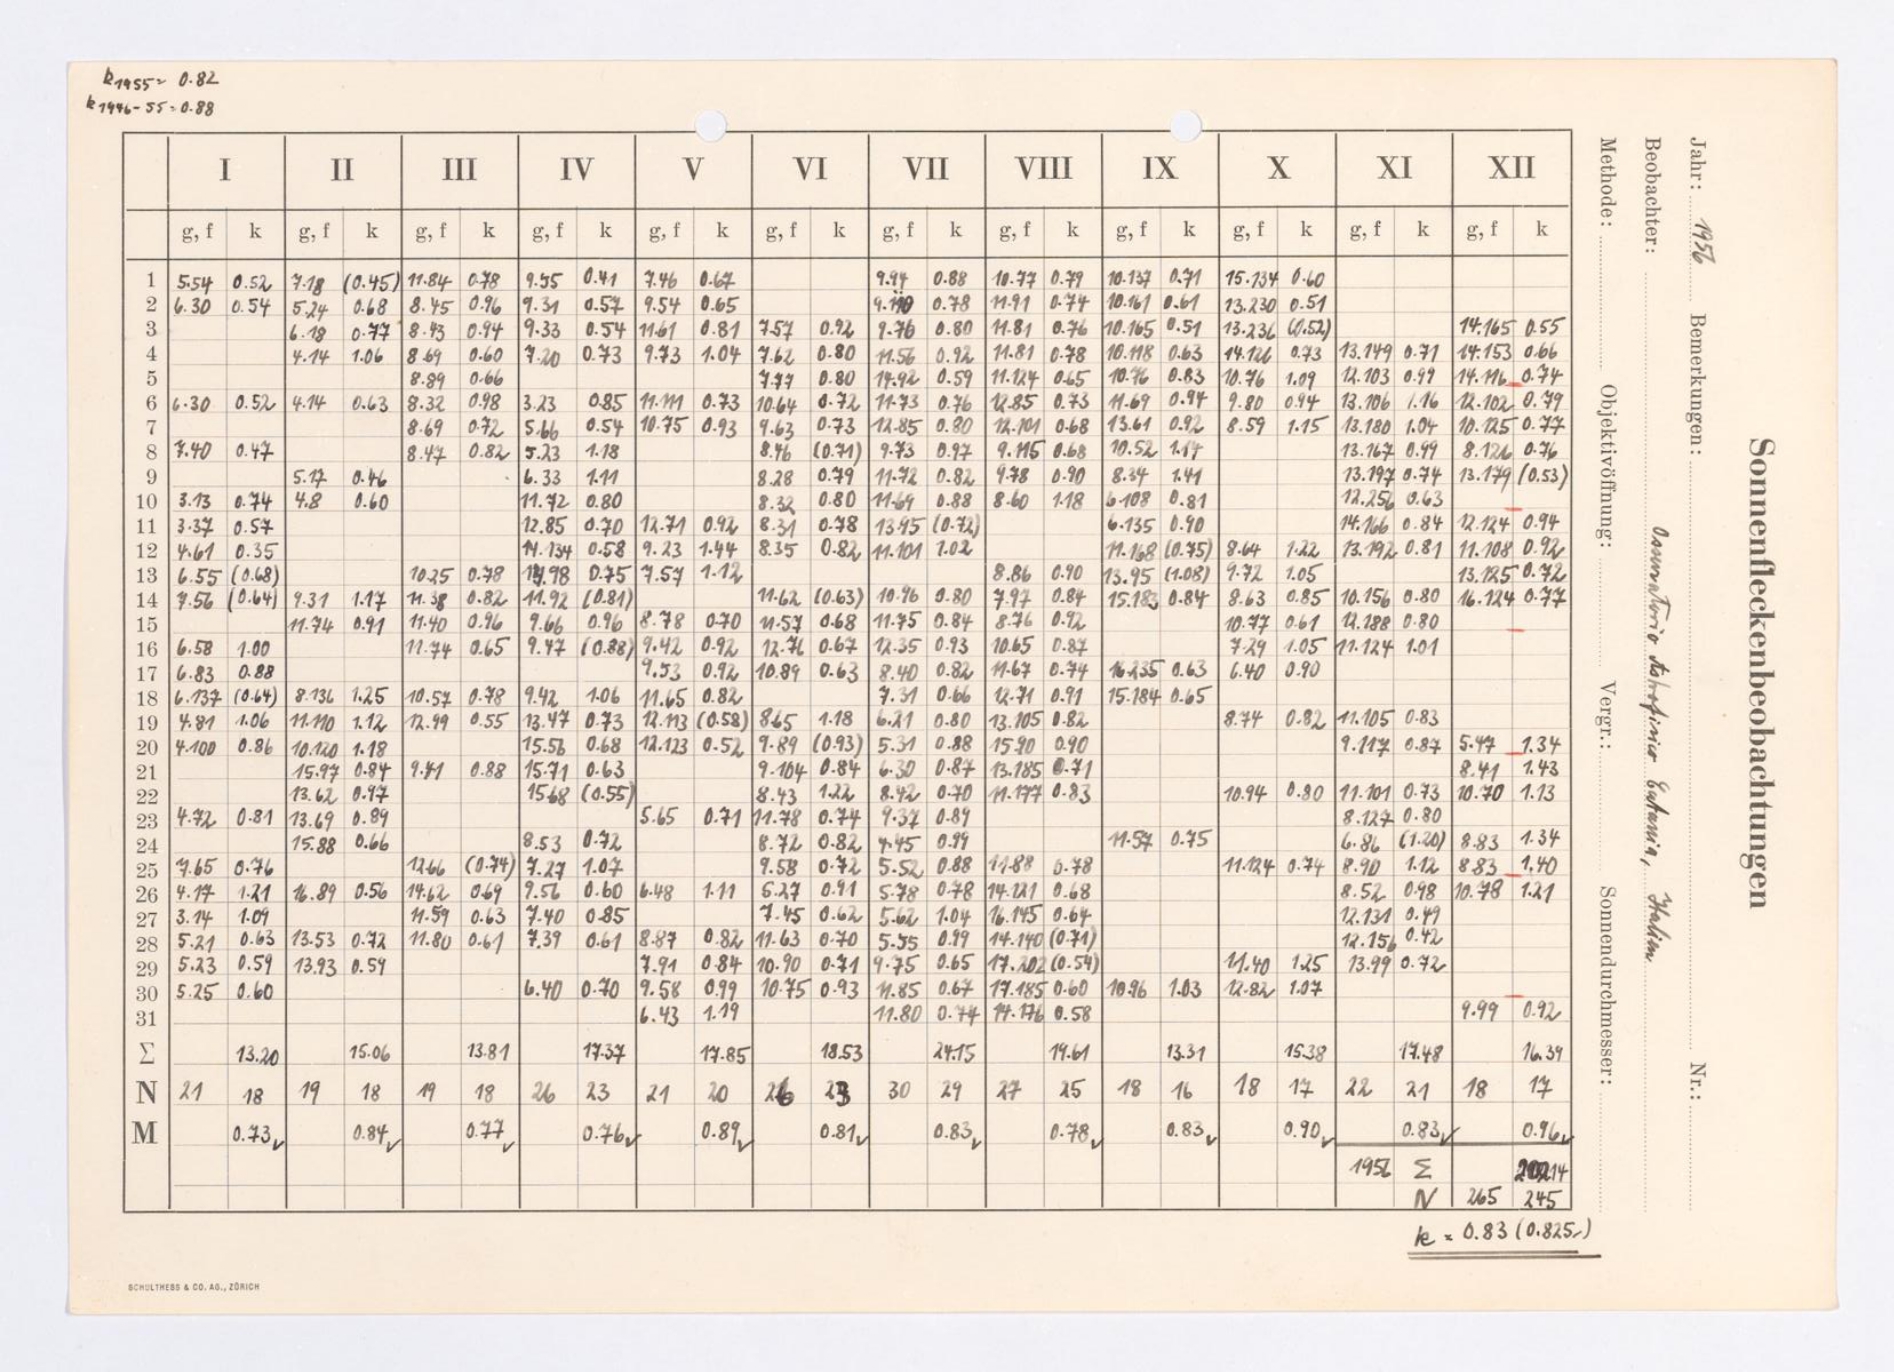 k1955= 0.82
k1946-55=0.88
I II III IV V VI VII VIII IX X XI XII
g, f k g, f k g, f k g, f k g, f k g, f k g, f k g, f k g, f k g, f k g, f k g, f k
1 5.54 0.52 7.18 (0.45) 11.84 0.78 9.55 0.41 7.46 0.67 9.94 0.88 10.77 0.79 10.137 0.71 15.134 0.60
2 6.30 0.54 5.24 0.68 8.45 0.96 9.31 0.57 9.54 0.65 0.78 11.91 0.74 10.161 0.61 13.230 0.51
3 6.18 0.77 8.43 0.94 9.33 0.54 11.61 0.81 7.57 0.92 9.76 0.80 11.81 0.76 10.165 0.51 13.236 (0.52) 14.165 0.55
4 4.14 1.06 8.69 0.60 7.20 0.73 9.73 1.04 7.62 0.80 11.56 0.92 11.81 0.78 10.118 0.63 14.126 0.73 13.149 0.71 14.153 0.66
5 8.89 0.66 7.77 0.80 14.92 0.59 11.124 0.65 10.76 0.83 10.76 1.09 12.103 0.99 14.116 0.74
6 6.30 0.52 4.14 0.63 8.32 0.98 3.23 0.85 11.111 0.73 10.64 0.72 11.73 0.76 12.85 0.73 11.69 0.94 9.80 0.94 13.106 1.16 12.102 0.79
7 8.69 0.72 5.66 0.54 10.75 0.93 9.63 0.73 12.85 0.80 12.101 0.68 13.61 0.92 8.59 1.15 13.180 1.04 10.125 0.77
8 7.40 0.47 8.47 0.82 5.23 1.18 8.96 (0.71) 9.73 0.97 9.115 0.68 10.52 1.17 13.167 0.99 8.126 0.76
9 5.17 0.46 6.33 1.11 8.28 0.79 11.72 0.82 9.78 0.90 8.34 1.41 13.197 0.74 13.179 (0.53)
10 3.13 0.74 4.8 0.60 11.72 0.80 8.32 0.80 11.69 0.88 8.60 1.18 6.108 0.81 12.256 0.63
11 3.37 0.57 12.85 0.70 12.71 0.92 8.31 0.78 13.95 (0.72) 6.135 0.90 14.166 0.84 12.124 0.94
12 4.61 0.35 14.134 0.58 9.23 1.44 8.35 0.82 11.101 1.02 11.168 (0.75) 8.64 1.22 13.192 0.81 11.108 0.92
13 6.55 (0.68) 10.25 0.78 0.75 7.57 1.12 8.86 0.90 13.95 (1.08) 9.72 1.05 13.125 0.72
14 7.56 (0.64) 9.31 1.17 11.38 0.82 11.92 (0.81) 11.62 (0.63) 10.96 0.80 7.97 0.84 15.183 0.84 8.63 0.85 10.156 0.80 16.124 0.77
15 11.74 0.91 11.40 0.96 9.66 0.96 8.78 0.70 11.57 0.68 11.75 0.84 8.76 0.92 10.77 0.61 12.188 0.80
16 6.58 1.00 11.74 0.65 9.47 (0.88) 9.42 0.92 12.76 0.67 12.35 0.93 10.65 0.87 7.29 1.05 11.124 1.01
17 6.83 0.88 9.53 0.92 10.89 0.63 8.40 0.82 11.67 0.74 16.235 0.63 6.40 0.90
18 6.137 (0.64) 8.136 1.25 10.57 0.78 9.42 1.06 11.65 0.82 7.31 0.66 12.71 0.91 15.184 0.65
19 4.81 1.06 11.110 1.12 12.99 0.55 13.47 0.73 12.113 (0.58) 8.65 1.18 6.21 0.80 13.105 0.82 8.74 0.82 11.105 0.83
20 4.100 0.86 10.120 1.18 15.56 0.68 12.123 0.52 9.89 (0.93) 5.31 0.88 15.90 0.90 9.117 0.87 5.47 1.34
21 15.97 0.84 9.41 0.88 15.71 0.63 9.104 0.84 6.30 0.87 13.185 0.71 8.41 1.43
22 13.62 0.97 15.68 (0.55) 8.43 1.22 8.42 0.70 11.177 0.83 10.94 0.80 11.101 0.73 10.70 1.13
23 4.72 0.81 13.69 0.89 5.65 0.71 11.78 0.74 9.37 0.89 8.127 0.80
24 15.88 0.66 8.53 0.72 8.72 0.82 4.45 0.99 11.57 0.75 6.86 (1.20) 8.83 1.34
25 7.65 0.76 12.66 (0.74) 7.27 1.07 9.58 0.72 5.52 0.88 11.88 0.78 11.124 0.74 8.90 1.12 8.83 1.40
26 4.17 1.21 16.89 0.56 14.62 0.69 9.56 0.60 6.48 1.11 6.27 0.91 5.78 0.78 14.121 0.68 8.52 0.98 10.78 1.21
27 3.14 1.09 11.59 0.63 7.40 0.85 7.45 0.62 5.62 1.04 16.145 0.64 12.131 0.49
28 5.21 0.63 13.53 0.72 11.80 0.61 7.39 0.61 8.87 0.82 11.63 0.70 5.55 0.99 14.140 (0.71) 12.156 0.42
29 5.23 0.59 13.93 0.59 7.91 0.84 10.90 0.71 9.75 0.65 17.202 (0.54) 11.40 1.25 13.99 0.72
30 5.25 0.60 6.40 0.70 9.58 0.99 10.75 0.93 11.85 0.67 17.185 0.60 10.96 1.03 12.82 1.07
31 6.43 1.19 11.80 0.74 14.176 0.58 9.99 0.92
Σ 13.20 15.06 13.81 17.37 17.85 18.53 24.15 19.61 13.31 15.38 17.48 16.39
N 21 18 19 18 19 18 26 23 21 20 26 23 30 29 27 25 18 16 18 17 22 21 18 17
M 0.73 0.84 0.77 0.76 0.89 0.81 0.83 0.78 0.83 0.90 0.83 0.96
1956 Σ
N 265 245
k = 0.83 (0.825)
SCHULTHESS & CO. AG., ZÜRICH
Sonnenfleckenbeobachtungen
Jahr: 1956 Bemerkungen: Nr.:
Beobachter: Osservatorio Astrofisico Catania, Italien
Methode: Objektivöffnung: Vergr.: Sonnendurchmesser: